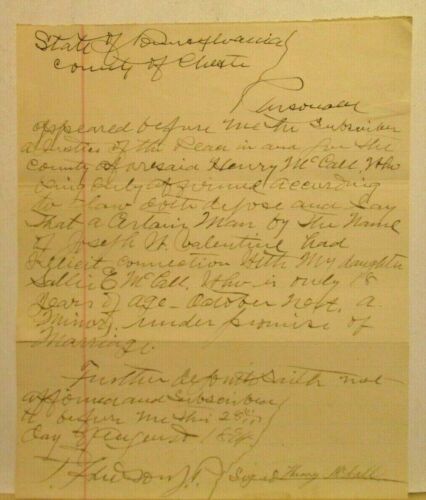 State of Pennsylvania
County of Chester
Personally
appeared before me the Subscriber
a Justice of the Peace in and for the
County Aforesaid Henry McCall, Who
being duly affirmed According
to Law doth depose and Say
That a Certain Man by the Name
of Joseph W. Valentine had
Illicit Connection With My daughter
Sallie E McCall, Who is only 18
Years of Age October Next, a
Minor, under promise of
Marriage.
Further deponent saith not
affirmed and Subscribed
to before me this 28th
day of August
Signed Henry McCall